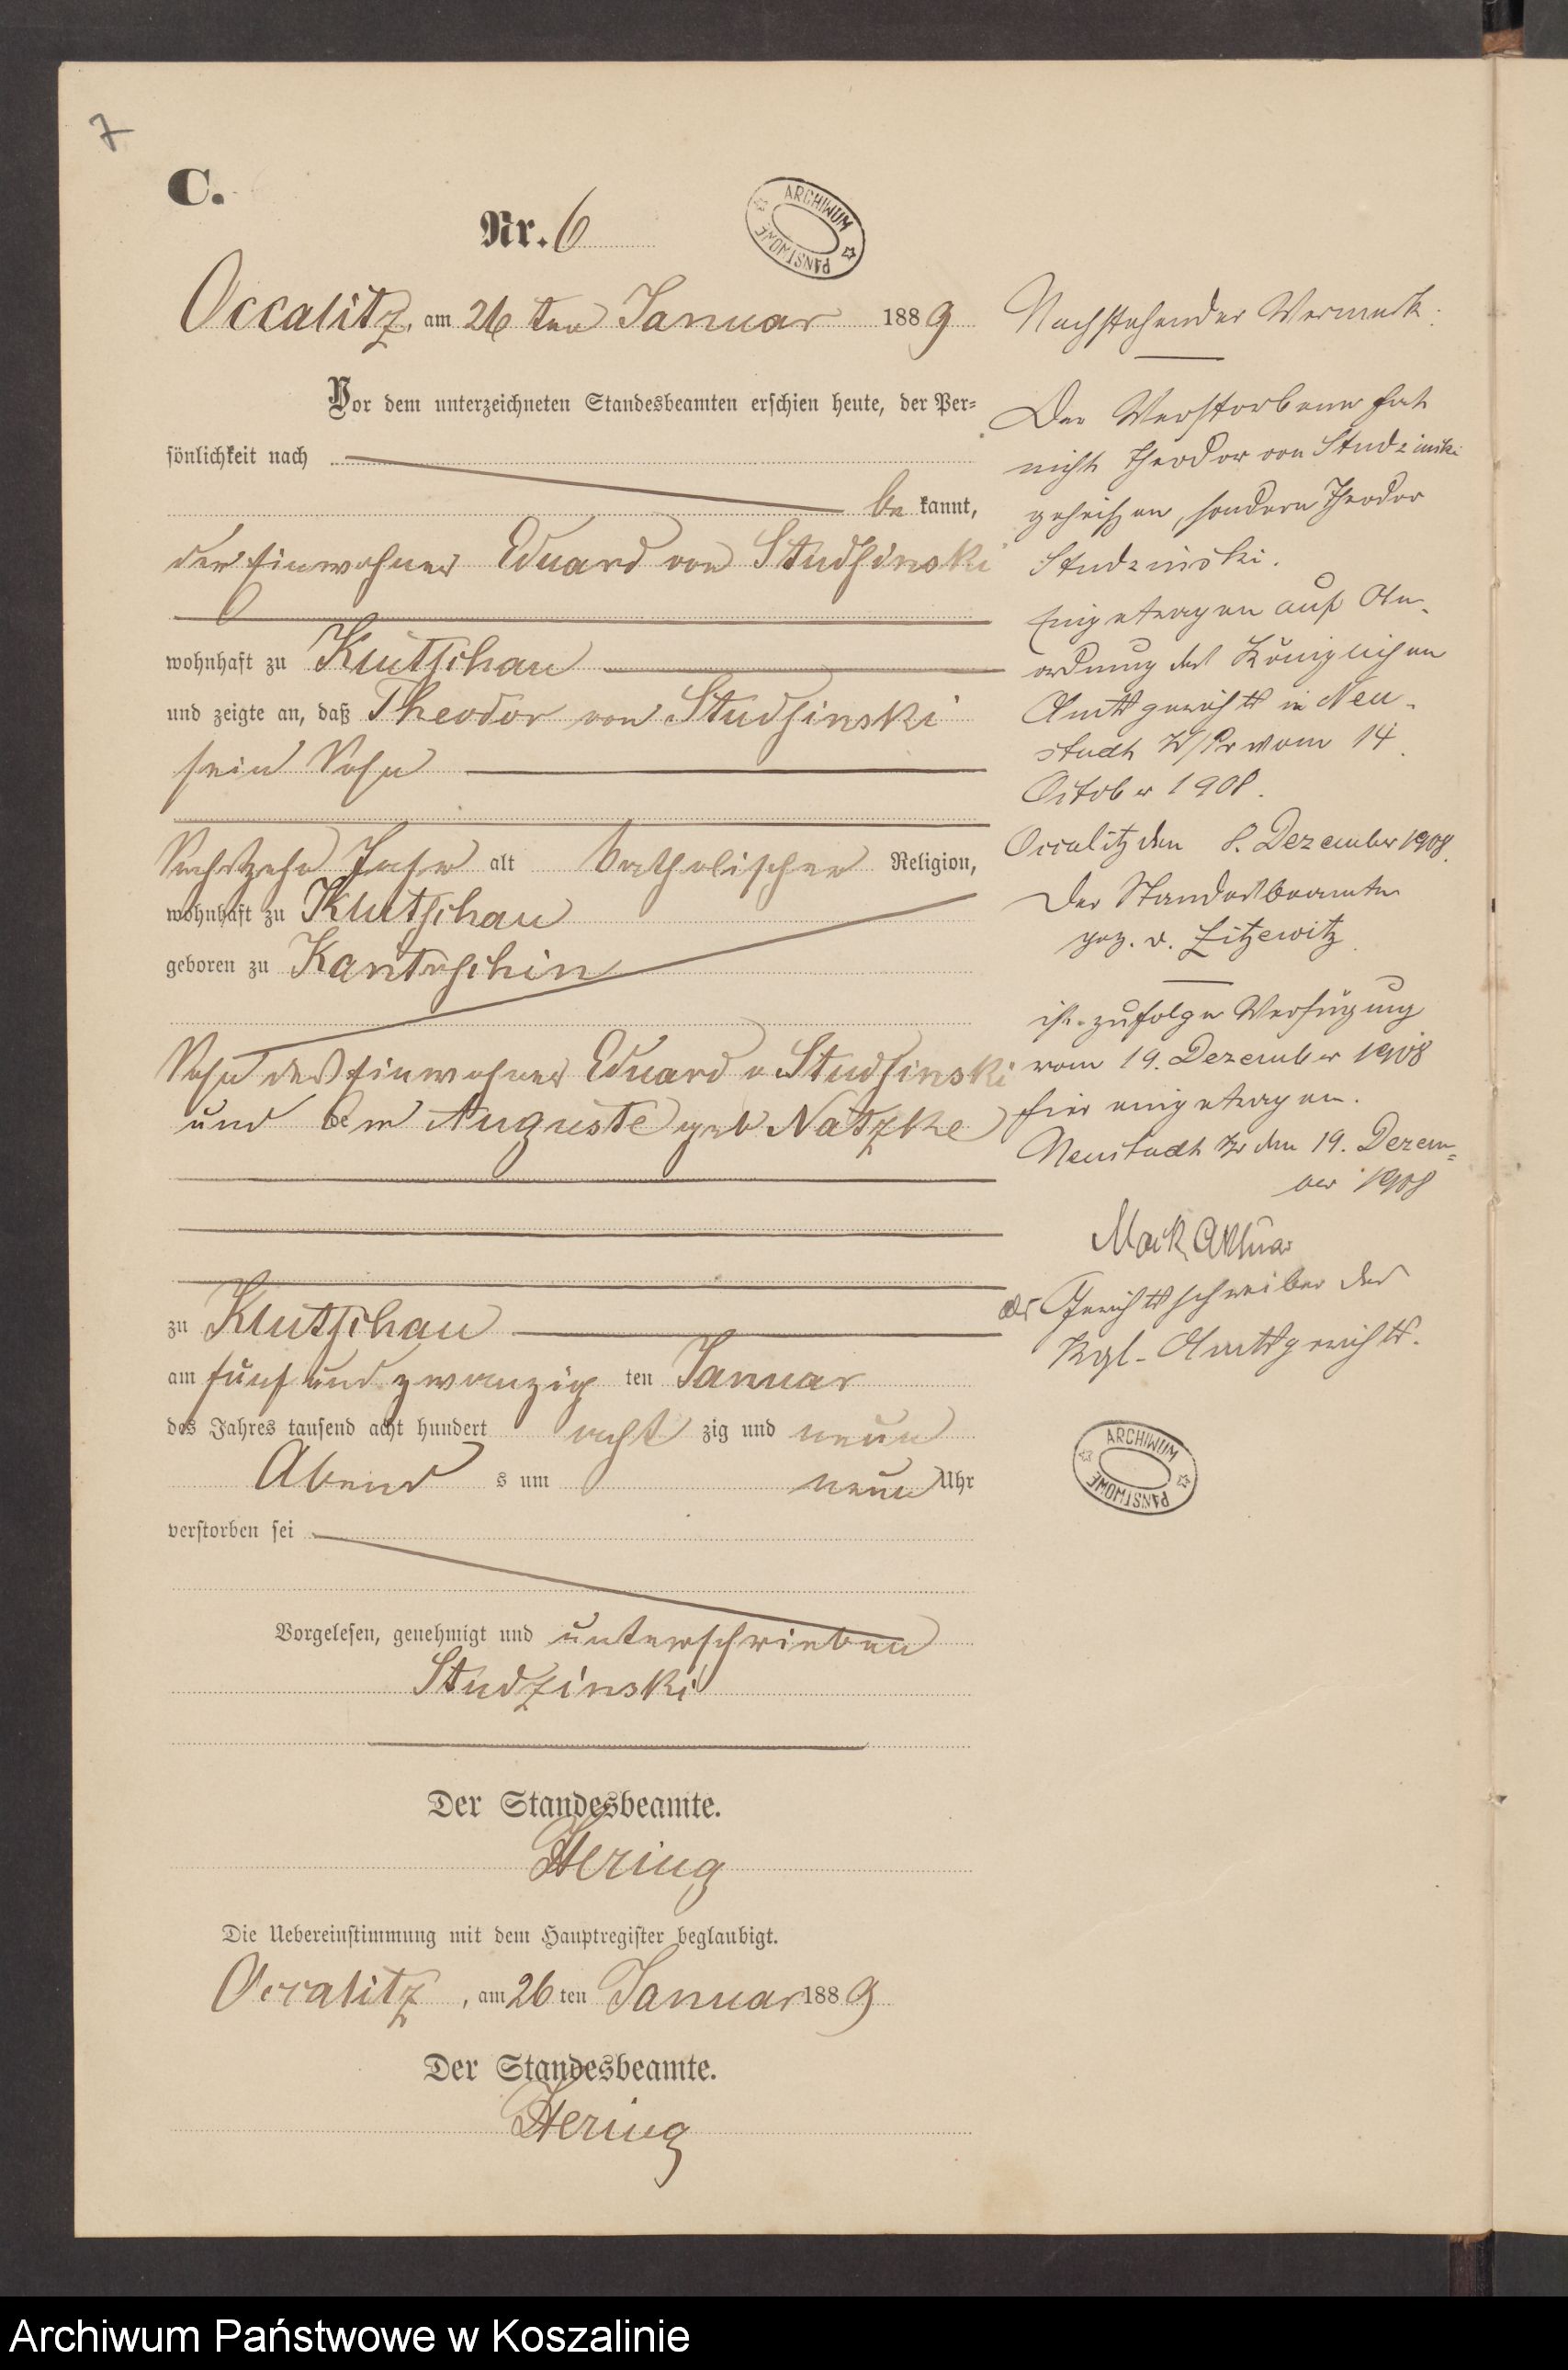 7
C.
Nr. 6
ARCHIWUM PAŃSTWOWE
Occalitz, am 26 ten Januar 1889
Vor dem unterzeichneten Standesbeamten erschien heute, der Per-
sönlichkeit nach
be kannt,
der Einwohner Eduard von Studzinski
wohnhaft zu Klutschau
und zeigte an, daß Theodor von Studzinski
sein Sohn
Sechszehn Jahr alt katholischer Religion,
wohnhaft zu Klutschau
geboren zu Kantrschin
Sohn des Einwohner Eduard v. Studzinski
und der Auguste geb Natzke
zu Klutschau
am fünf und zwanzig ten Januar
des Jahres tausend acht hundert acht zig und neun
Abend s um neun Uhr
verstorben sei
Vorgelesen, genehmigt und unterschrieben
Studzinski
Der Standesbeamte.
Hering
Die Uebereinstimmung mit dem Hauptregister beglaubigt.
Occalitz, am 26 ten Januar 1889
Der Standesbeamte.
Hering
Nachstehender Vermerk:
Der Verstorbene hat
nicht Theodor von Studzinski
geheißen, sondern Theodor
Studzinski.
Eingetragen auf An-
ordnung des Königlichen
Amtsgerichts in Neu-
stadt W/Pr vom 14.
October 1908.
Occalitz den 8. Dezember 1908.
Der Standesbeamte
gez. v. Zitzewitz
ist zufolge Verfügung
vom 19. Dezember 1908
hier eingetragen.
Neustadt den 19. Dezem-
ber 1908
Aktuar
als Gerichtsschreiber des
Kgl. Amtsgerichts.
ARCHIWUM PAŃSTWOWE
Archiwum Państwowe w Koszalinie